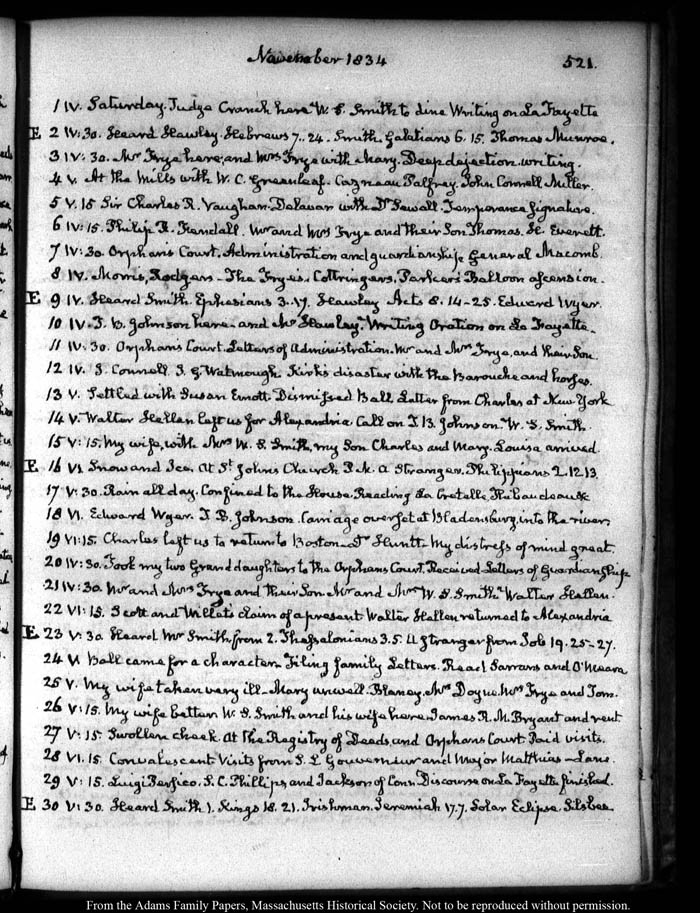 November 1834 521.
1 IV. Saturday. Judge Cranch here W. S. Smith to dine Writing on La Fayette
E 2 IV:30. Heard Hawley. Hebrews 7. 24. Smith, Galatians 6. 15. Thomas Munroe.
3 IV:30. Mr Frye here, and Mrs Frye with Mary. Deep dejection. writing.
4 V. At the Mills with W. C. Greenleaf. Cazneau Palfrey. John Connell Miller.
5 V.15 Sir Charles R. Vaughan. Delavan with Dr Sewall. Temperance signature.
6 IV:15. Philip R. Fendall. Mr and Mrs Frye and their Son Thomas. H. Everett.
7 IV:30. Orphans Court. Administration and guardianship General Macomb.
8 IV. Morris, Rodgers - The Frye's. Cottringers, Parker's Balloon ascension.
E 9 IV. Heard Smith. Ephesians 3. 17. Hawley Acts 8. 14-25. Edward Wyer.
10 IV. J. B. Johnson here. and Mr Hawley. Writing Oration on La Fayette.
11 IV:30. Orphan's Court. Letters of administration. Mr and Mrs Frye, and their Son.
12 IV. J. Connell J. G. Watmough. Kirk's disaster with the Barouche and horses.
13 V. Settled with Susan Emott. Dismissed Ball. Letter from Charles at New York
14 V. Walter Hellen left us for Alexandria. Call on J. B. Johnson. W. S. Smith.
15 V:15. My wife, with Mrs W. S. Smith, my Son Charles and Mary Louisa arrived.
E 16 VI Snow and Ice. At St Johns Church P.M. a Stranger. Philippians 2. 12.13.
17 V:30. Rain all day. Confined to the House. Reading La Cretelle. Thibaudeau &c
18 VI. Edward Wyer. J. B. Johnson. Carriage overset at Bladensburg, into the river.
19 VI:15. Charles left us to return to Boston. Dr Huntt. My distress of mind great.
20 IV:30. Took my two Grand daughters to the Orphans Court. Received Letters of Guardianship
21 IV:30. Mr and Mrs Frye and their Son. Mr and Mrs W. S. Smith. Walter Hellen.
22 VI:15. Scott and Willet's claim of a present Walter Hellen returned to Alexandria
E 23 V:30 Heard Mr Smith from 2. Thessalonians 3. 5. A stranger from Job 19. 25-27.
24 V. Ball came for a character. Filing family Letters. Read Sarrans and O'Meara
25 V. My wife taken very ill. Mary unwell. Blaney. Mrs Doyne. Mrs Frye and Tom.
26 V:15. My wife better. W. S. Smith and his wife here. James R. M. Bryant and rent
27 V:15. Swollen cheek. At the Registry of Deeds, and Orphans Court. Paid visits.
28 VI.15. Convalescent Visits from S. L Gouverneur and Major Matthias - Lane.
29 V:15. Luigi Persico. S. C. Phillips, and Jackson of Conn. Discourse on La Fayette finished.
E 30 V:30. Heard Smith 1. Kings 18. 21. Irishman. Jeremiah 17.7. Solar Eclipse. Silsbee
From the Adams Family Papers, Massachusetts Historical Society. Not to be reproduced without permission.